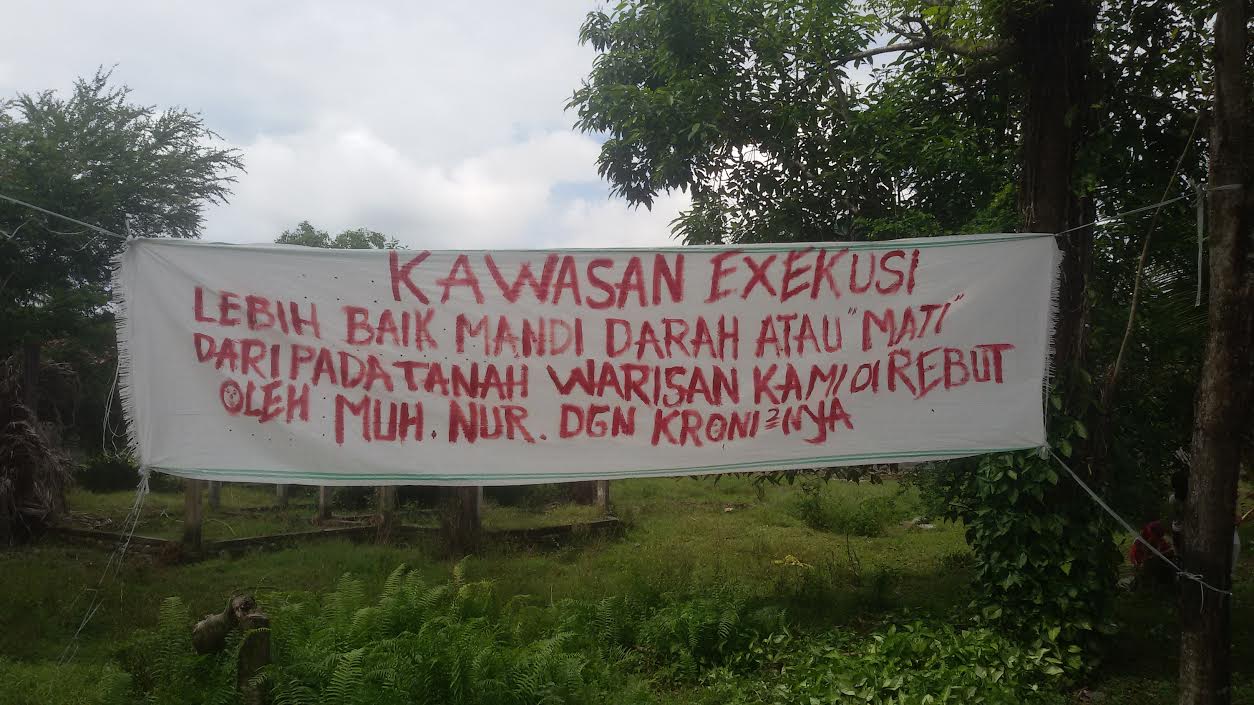 KAWASAN EXEKUSI
LEBIH BAIK MANDI DARAH ATAU "MATI"
DARI PADA TANAH WARISAN KAMI DI REBUT
OLEH MUH. NUR. DGN KRONI²NYA